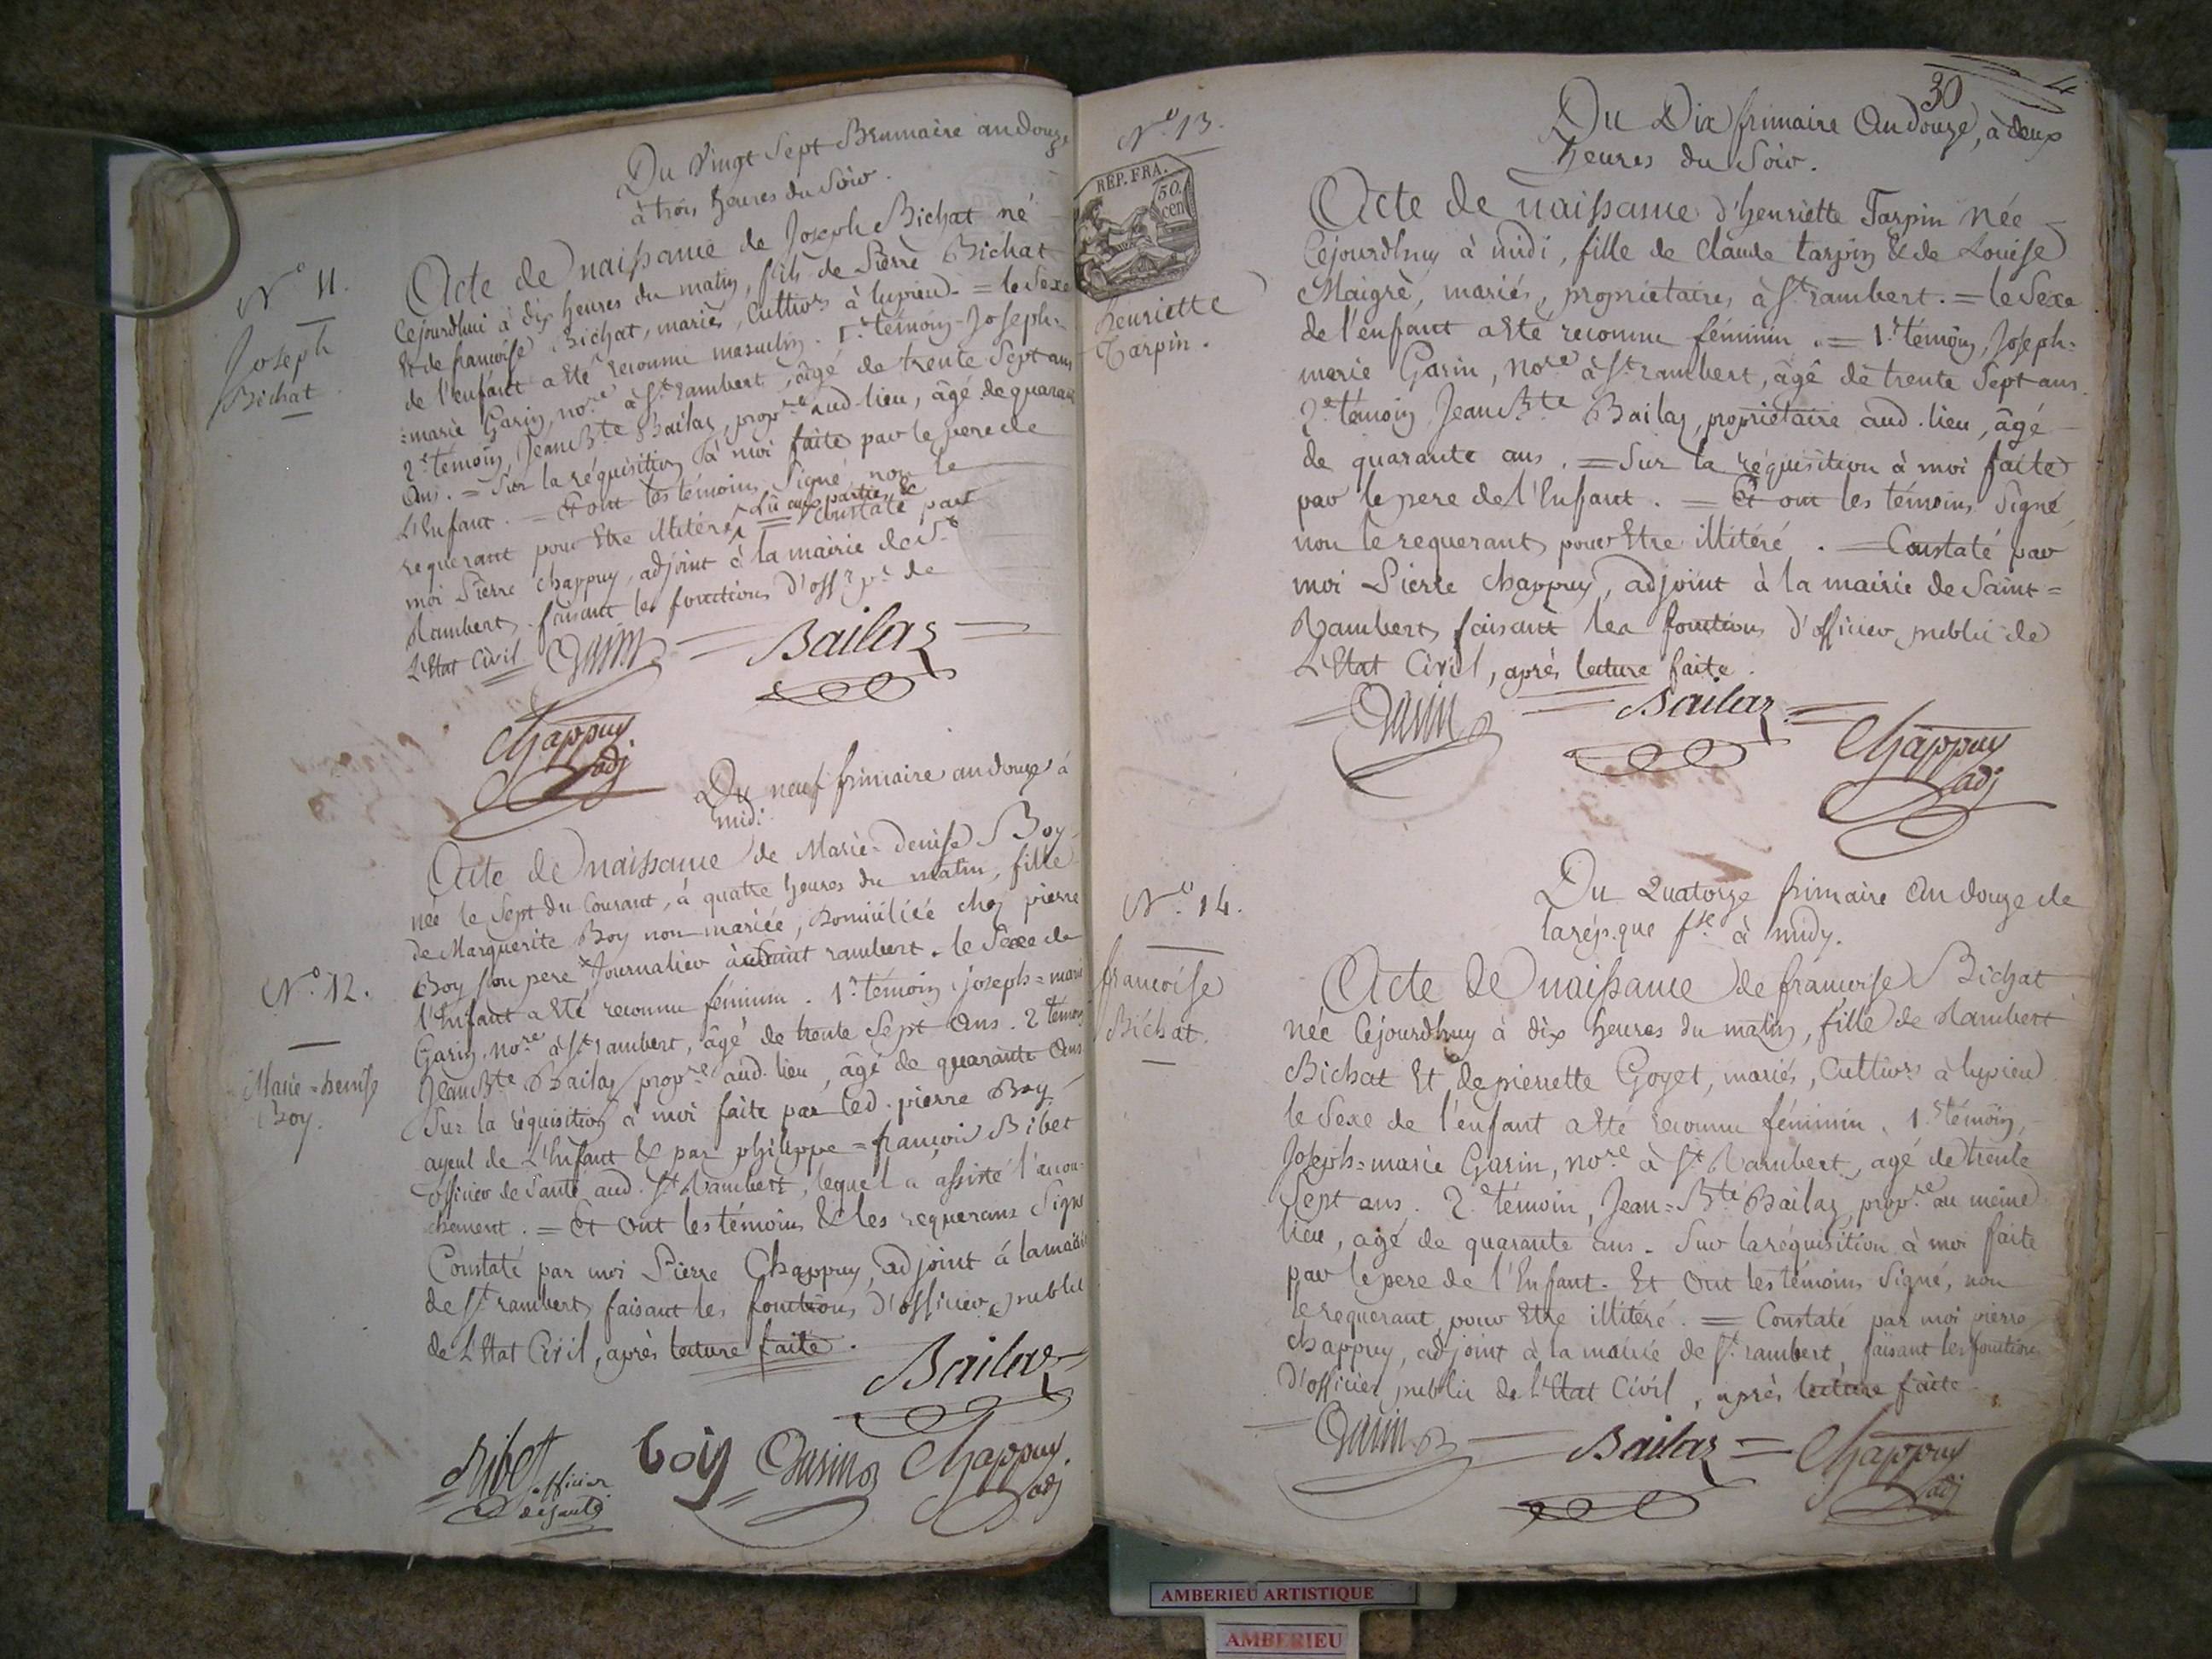 Du Vingt Sept Brumaire an douze,
à trois heures du Soir.
N.º 11.
Joseph
Bichat
Acte de naissance de Joseph Bichat né
Cejourdhui à dix heures du matin, fils de Pierre Bichat
Et de francoise Bichat, mariés, Cultivrs à lupieu. = le Sexe
de l'enfant a Eté reconnu masculin. 1.r témoin Joseph=
=marie Garin, nore à St rambert, âgé de trente Sept ans
2.e témoin, Jean Bte Bailaz, propre aud. lieu, âgé de quarante
Ans. = Sur la réquisition à moi faite par le pere de
L'Enfant. = Et ont les témoins Signé non le
requerant pour Etre illitéré, Lû aux parties & = Constaté par
moi Pierre Chappuy, adjoint à la mairie de St
Rambert faisant les fonctions d'offr pc de
L'Etat Civil Garin = Bailaz
Chappuy
adj
Du neuf frimaire an douze à
midi.
N.º 12.
Marie = denise
Boy.
Acte de naissance de Marie = denise Boy
née le Sept du Courant, à quatre heures du matin, fille
de Marguerite Boy non mariée, Domiciliée chez pierre
Boy Son pere Journalier à Saint rambert. le Sexe de
l'Enfant a Eté reconnu féminin. 1.r témoin joseph = marie
Garin, nore à St rambert, âgé de trente Sept Ans. 2 témoin
Jean Bte Bailaz propre aud. lieu, âgé de quarante Ans
Sur la réquisition à moi faite par led. pierre Boy
ayeul de L'Enfant & par philippe = françois Ribet
officier de Santé aud. St Rambert, lequel a assisté l'accou-
chement. = Et Ont les témoins & les requerans Signé
Constaté par moi Pierre Chappuy, adjoint à la mairie
de St rambert faisant les fonctions d'officier public
de L'Etat Civil, après lecture faite.
Bailaz
Ribet officier
de Santé
boiy Garin Chappuy
adj
30
Du Dix frimaire An douze, à deux
heures du Soir.
N.º 13.
REP. FRA.
50.
cen
henriette
Tarpin.
Acte de naissance d'henriette Tarpin née
Cejourdhuy à midi, fille de Claude tarpin & de Louise
Maigre, mariés, proprietaires à St rambert. = le Sexe
de l'enfant a Eté reconnu féminin. = 1.r témoin, Joseph=
marie Garin, nore à St rambert, âgé de trente Sept ans
2.e témoin Jean Bte Bailaz, propriétaire aud. lieu, âgé
de quarante ans. = Sur la réquisition à moi faite
par le pere de l'Enfant. = Et ont les témoins Signé
non le requerant pour Etre illitéré. = Constaté par
moi Pierre Chappuy, adjoint à la mairie de Saint=
Rambert faisant les fonctions d'officier public de
L'Etat Civil, après lecture faite.
Garin = Bailaz = Chappuy
adj
Du Quatorze frimaire An douze de
la rép.que fse à midy.
N.º 14.
françoise
Bichat.
Acte de naissance de françoise Bichat
née Cejourdhuy à dix heures du matin, fille de Rambert
Bichat Et de pierrette Goyet, mariés, Cultivrs à lupieu
le Sexe de l'enfant a Eté reconnu féminin. 1.r témoin,
Joseph = marie Garin, nore à St Rambert, agé de trente
Sept ans. 2.e témoin, Jean = Bte Bailaz, propre au même
lieu, agé de quarante ans. Sur la réquisition à moi faite
par le pere de l'Enfant. Et Ont les témoins Signé, non
le requerant pour Etre illitéré. = Constaté par moi pierre
Chappuy, adjoint à la mairie de St rambert, faisant les fonctions
d'officier public de L'Etat Civil, après lecture faite.
Garin = Bailaz = Chappuy
adj
AMBERIEU ARTISTIQUE
AMBERIEU